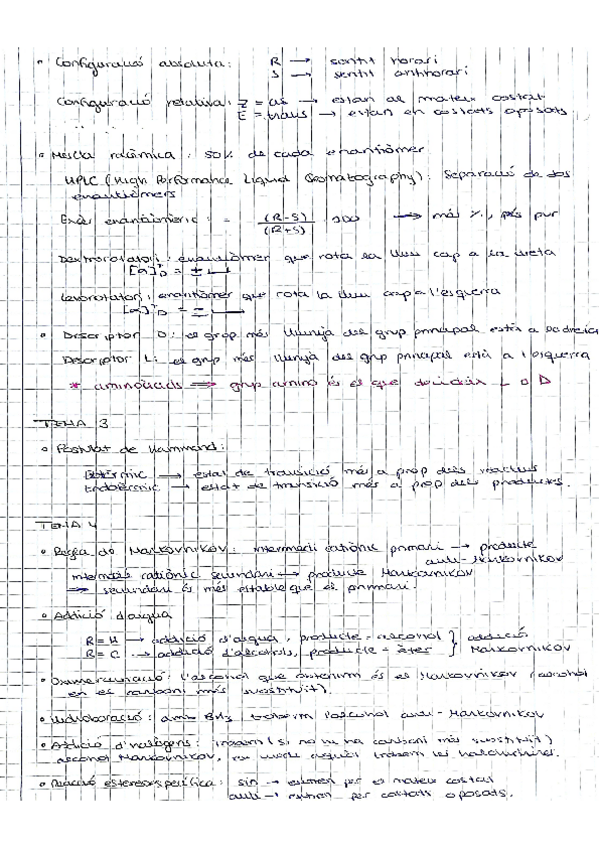 • Configuració absoluta: R → sentit horari
S → sentit antihorari
Configuració relativa: Z = cis → estan al mateix costat
E = trans → estan en costats oposats
• Mescla racèmica: 50% de cada enantiòmer
HPLC (High Performance Liquid Cromatography): Separació de dos
enantiòmers
Excés enantiomèric: = (R-S) / (R+S) · 100 → més %, més pur
Dextrorotatori: enantiòmer que rota la llum cap a la dreta
[α]ᵀD = +
Levorotatori: enantiòmer que rota la llum cap a l'esquerra
[α]ᵀD = -
• Descriptor D: el grup més llunyà del grup principal està a la dreta
Descriptor L: el grup més llunyà del grup principal està a l'esquerra
* aminoàcids ⇒ grup amino és el que decideix L o D
TEMA 3
• Postulat de Hammond:
Exotèrmic → estat de transició més a prop dels reactius
Endotèrmic → estat de transició més a prop dels productes.
TEMA 4
• Regla de Markovnikov: intermedi catiònic primari → producte
anti-Markovnikov
intermedi catiònic secundari → producte Markovnikov
⇒ secundari és més estable que el primari.
• Addició d'aigua
R = H → addició d'aigua, producte = alcohol } addició
R = C → addició d'alcohols, producte = èter } Markovnikov
• Oximercuriació: l'alcohol que obtenim és el Markovnikov (alcohol
en el carboni més substituït).
• Hidroboració: amb BH3, obtenim l'alcohol anti-Markovnikov
• Addició d'halògens: (si no hi ha carboni més substituït)
alcohol Markovnikov,
• Reacció estereoespecífica: sin → entren per el mateix costat
anti → entren per costats oposats.